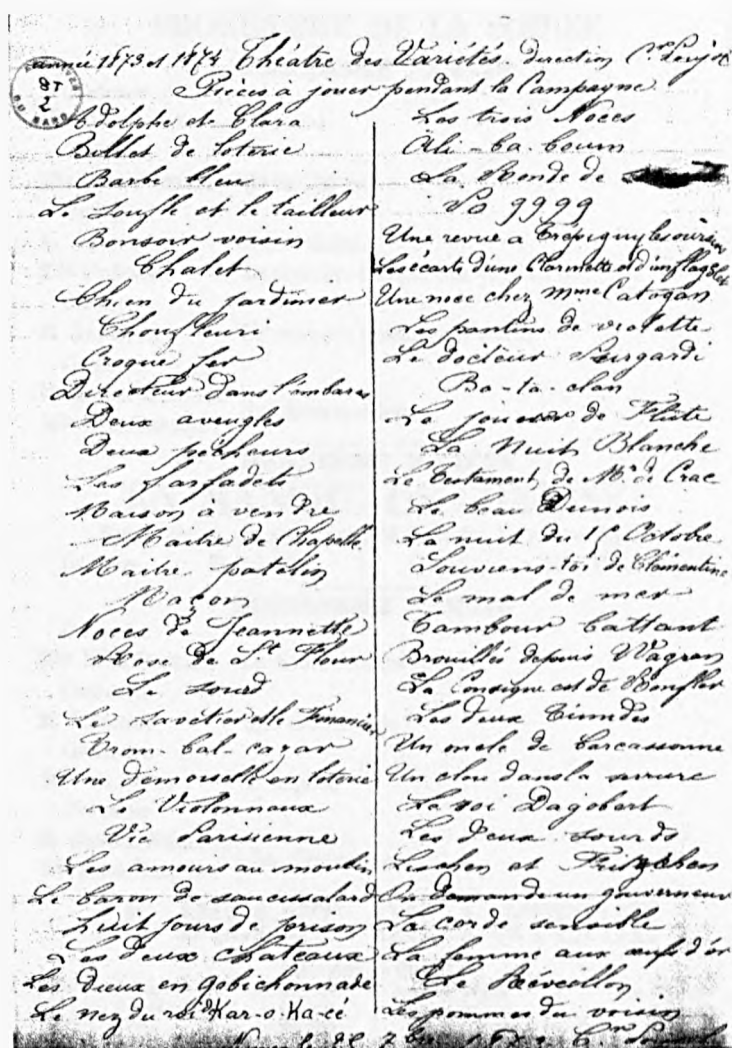 année 1873 et 1874 Théâtre des Variétés direction
Pièces à jouer pendant la Campagne
Adolphe et Clara
Billet de loterie
Barbe bleue
Le Soufle et le tailleur
Bonsoir voisin
Chalet
Chien du jardinier
Choufleuri
Croque fer
Directeur dans l'embaras
Deux aveugles
Deux pêcheurs
Les farfadets
Maison à vendre
Maitre de Chapelle
Maitre patelin
Maçon
Noces de Jeannette
Rose de St Flour
Le sourd
Le Savetier et le Financier
Trom-bal-cazar
Une demoiselle en loterie
Le Violonneux
Vie Parisienne
Les amours au moulin
Le baron de saucissalard
Huit jours de prison
Les deux Chateaux
Les dieux en gobichonnade
Le nez du roi Kar-o-Ka-cé
Les trois Noces
Ali-ba-boum
La Ronde de
No 9999
Une revue a
Les écarts d'une Clarinette et d'un flag
Une noce chez Mme Catogan
Les pantins de violette
Le docteur Purgandi
Ba-ta-clan
Le joueur de Flûte
La Nuit Blanche
Le Testament de Mr de Crac
Le beau Dunois
La nuit du 15 Octobre
Souviens-toi de Clémentine
Le mal de mer
Tambour battant
Brouillés depuis Wagram
La Consigne est de Ronfler
Les deux Timides
Un oncle de Carcassonne
Un clou dans la serrure
Le roi Dagobert
Les deux sourds
Lischen et Fritzchen
On demande un gouverneur
La corde sensible
La femme aux œufs d'or
Le Réveillon
Les pommes du voisin